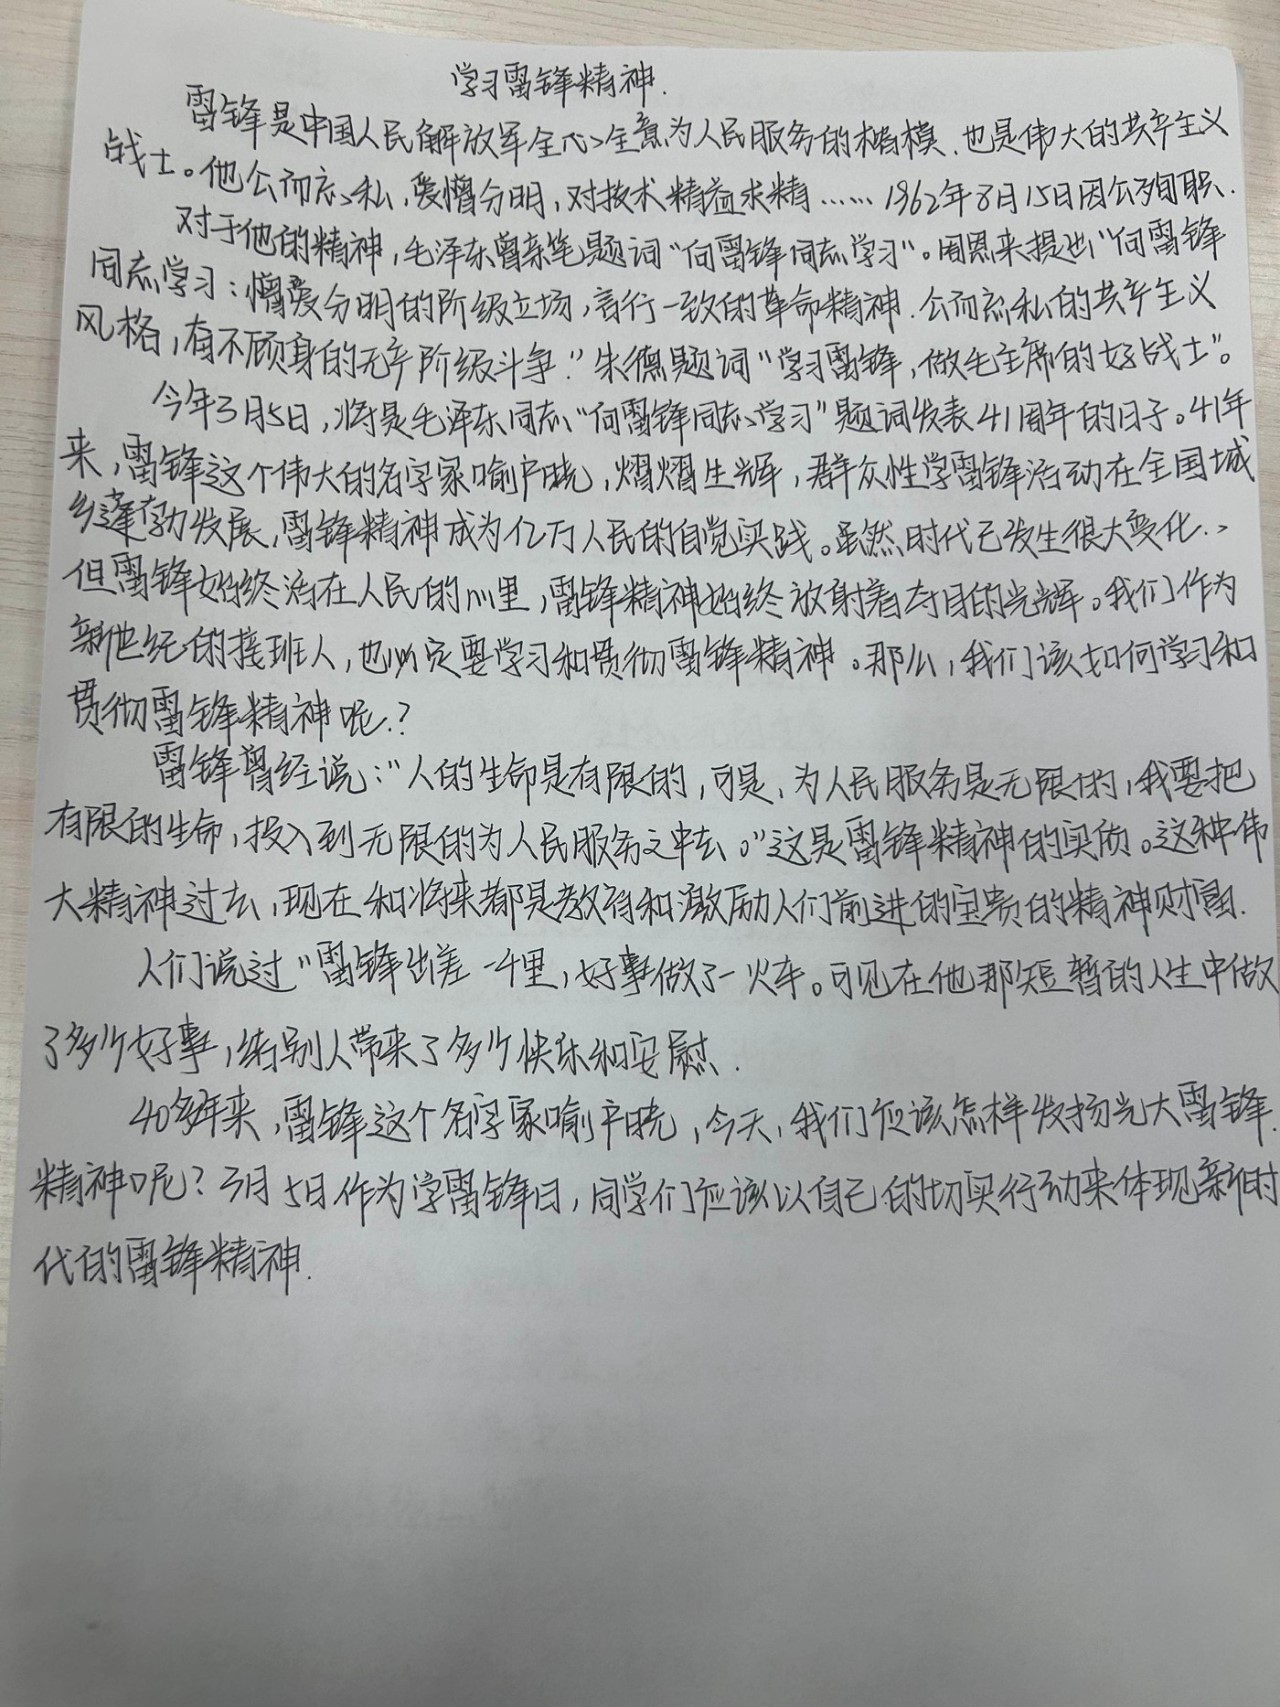 学习雷锋精神.
雷锋是中国人民解放军全心全意为人民服务的楷模、也是伟大的共产主义
战士。他公而忘私,爱憎分明,对技术精益求精……1962年8月15日因公殉职.
对于他的精神,毛泽东曾亲笔题词“向雷锋同志学习”。周恩来提出“向雷锋
同志学习:憎爱分明的阶级立场,言行一致的革命精神.公而忘私的共产主义
风格,奋不顾身的无产阶级斗争.”朱德题词“学习雷锋,做毛主席的好战士”。
今年3月5日,将是毛泽东同志“向雷锋同志学习”题词发表41周年的日子。41年
来,雷锋这个伟大的名字家喻户晓,熠熠生辉,群众性学雷锋活动在全国城
乡蓬勃发展,雷锋精神成为亿万人民的自觉实践。虽然时代已发生很大变化、
但雷锋始终活在人民的心里,雷锋精神始终放射着夺目的光辉。我们作为
新世纪的接班人,也必定要学习和贯彻雷锋精神。那么,我们该如何学习和
贯彻雷锋精神呢.?
雷锋曾经说:“人的生命是有限的,可是、为人民服务是无限的,我要把
有限的生命,投入到无限的为人民服务之中去。”这是雷锋精神的实质。这种伟
大精神过去,现在和将来都是教育和激励人们前进的宝贵的精神财富.
人们说过“雷锋出差一千里,好事做了一火车。可见在他那短暂的人生中做
了多少好事,给别人带来了多少快乐和安慰.
40多年来,雷锋这个名字家喻户晓,今天,我们应该怎样发扬光大雷锋
精神呢?3月5日作为学雷锋日,同学们应该以自己的切实行动来体现新时
代的雷锋精神.